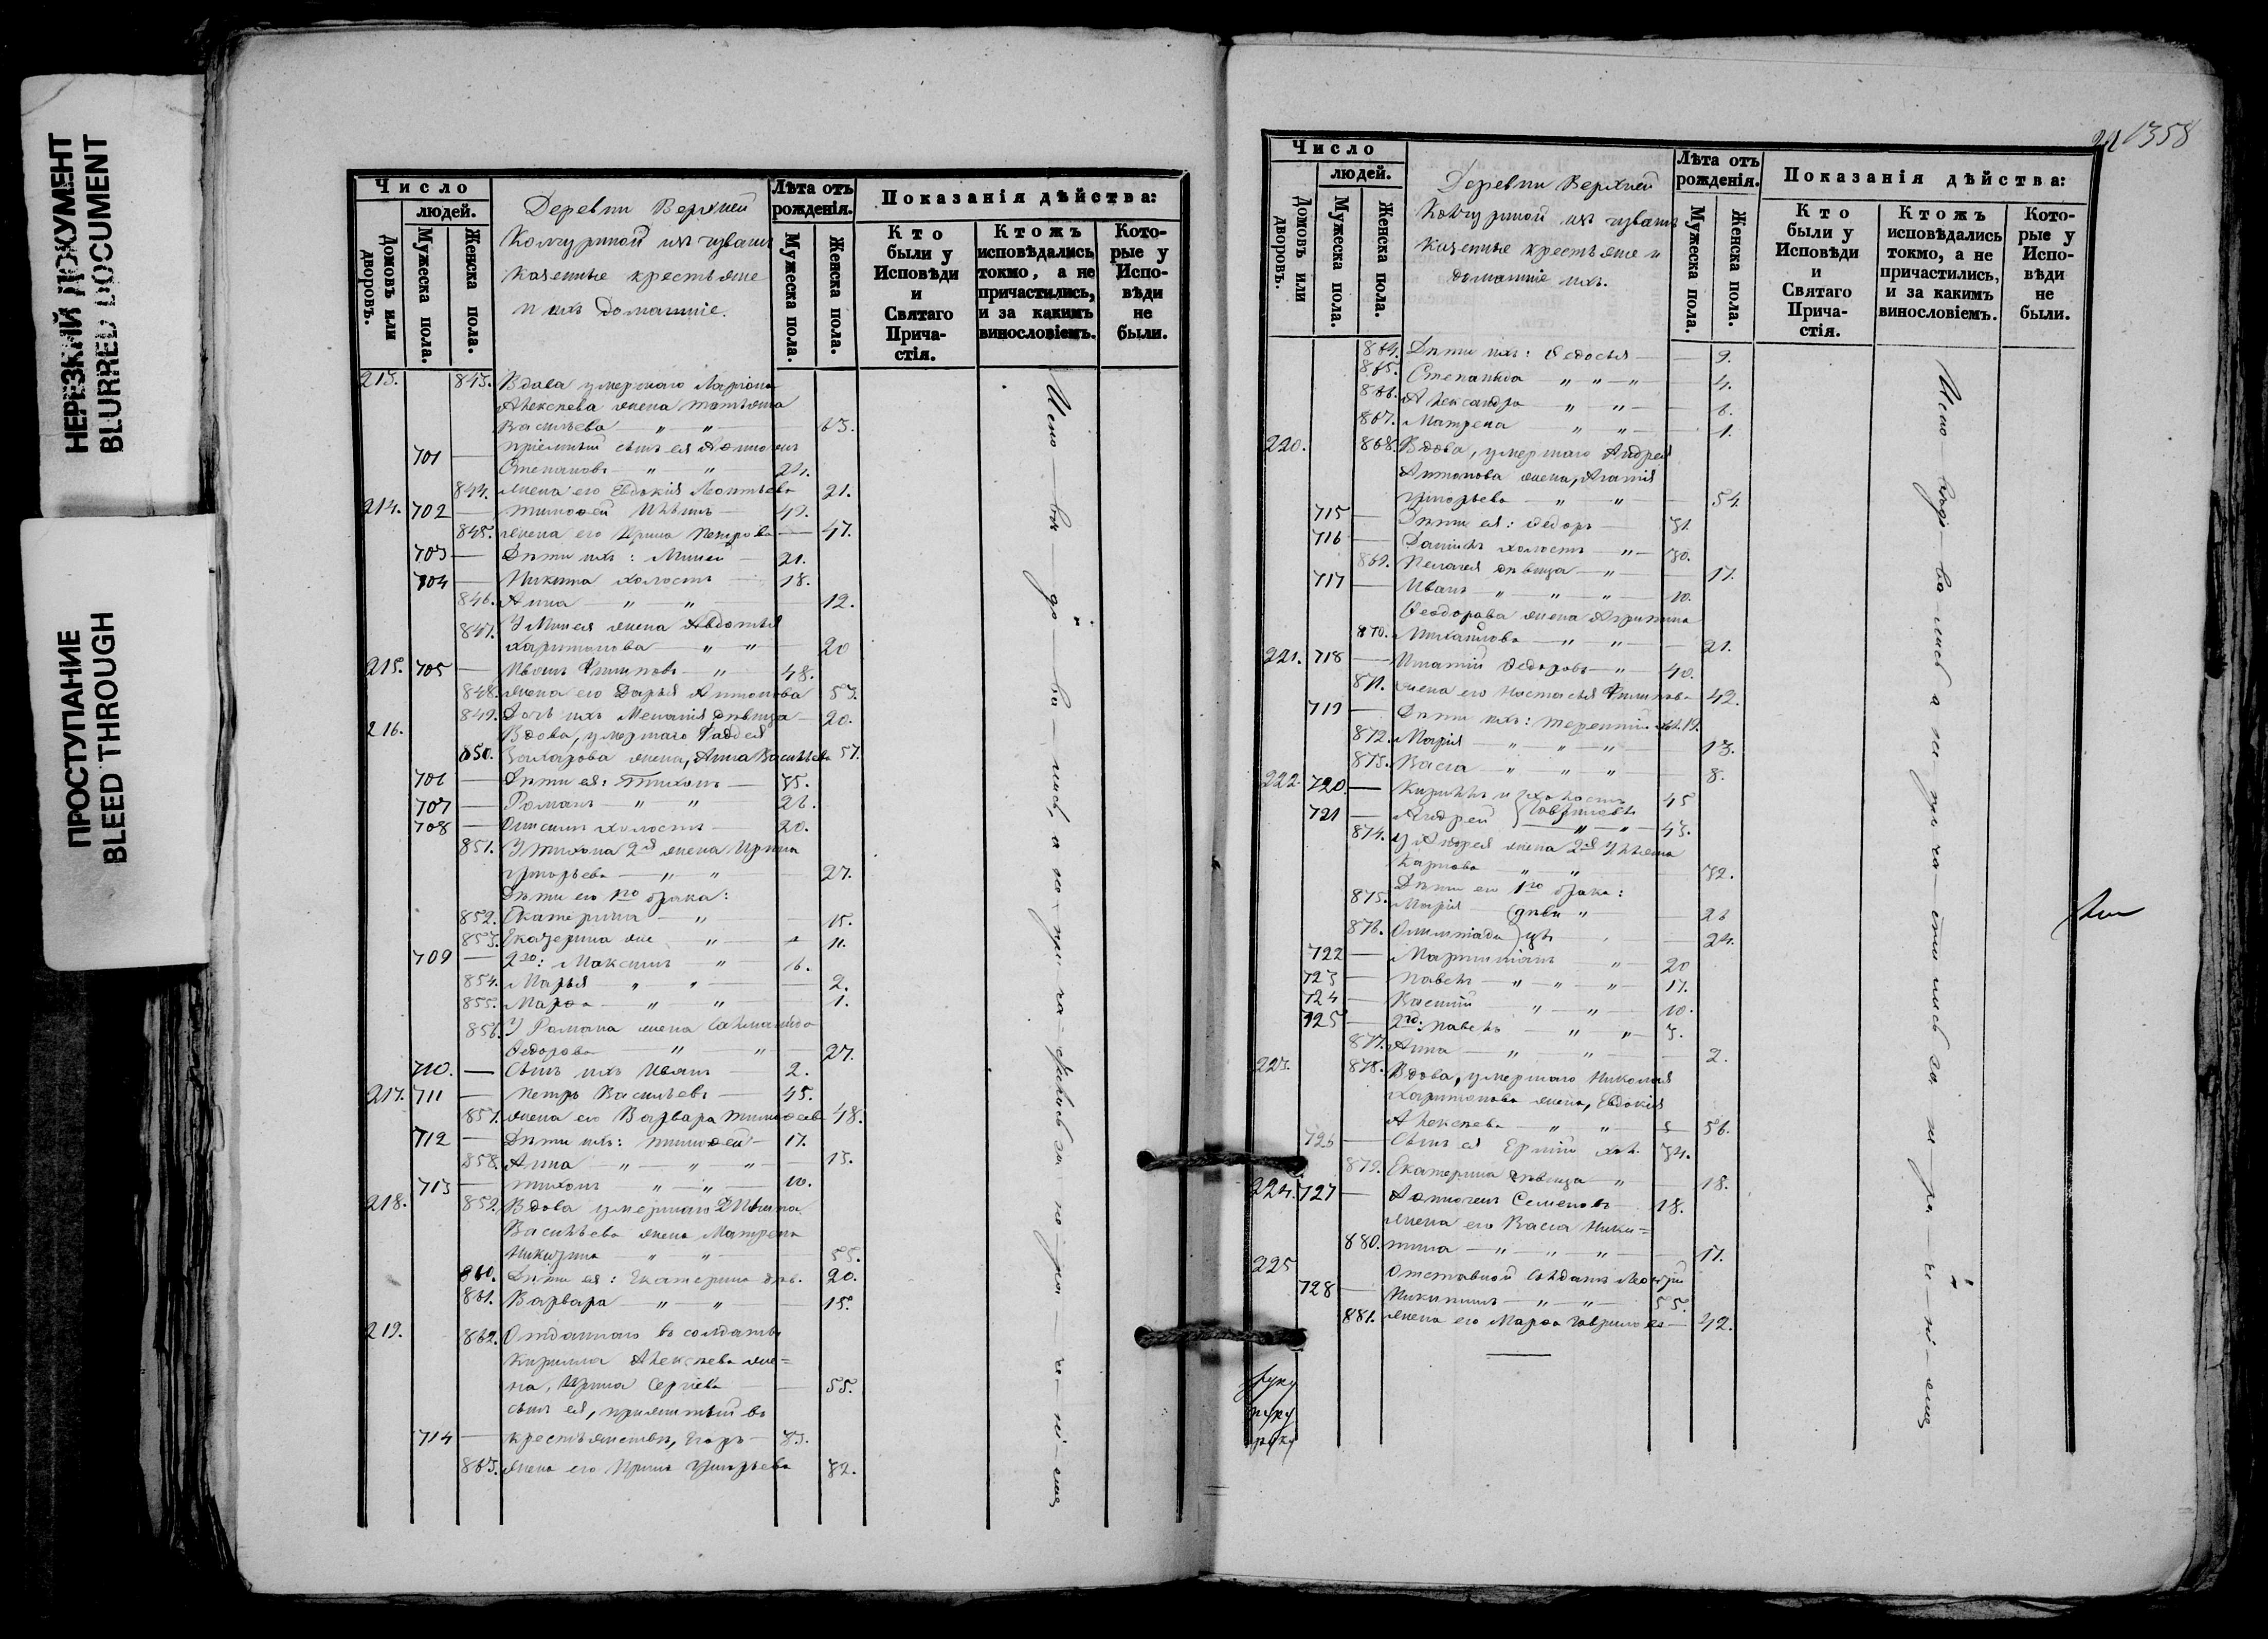 НЕРЕЗКИЙ ДОКУМЕНТ
BLURRED DOCUMENT
ПРОСТУПАНИЕ
BLEED THROUGH
Число
людей.
Домовъ или дворовъ.
Мужеска пола.
Женска пола.
Деревни Верхней
Колчуриной изъ чувашъ
казенные крестьяне
и ихъ домашніе.
Лѣта отъ рожденія.
Мужеска пола.
Женска пола.
Показанія дѣйства:
Кто были у Исповѣди и Святаго Прича-стія.
Ктожъ исповѣдались токмо, а не причастились, и за какимъ винословіемъ.
Кото-рые у Испо-вѣди не были.
213. 843. Вдова умершаго Ларіона
Алексѣева жена Татьяна
Васильева — " — " 63.
701 — пріемный сынъ ея
Степановъ — " — " 24.
844. жена его Евдокія Леонтьева 21.
214. 702 — Тимоѳей Ильинъ — 49.
845. жена его Ирина Петрова — 47.
703 — Дѣти ихъ: Миней — 21.
704 — Никита холостъ — 18.
846. Анна — " — " — 12.
847. У Минея жена Авдотья
Харитонова — " — " — 20
215. 705 — Иванъ Филиповъ — " — 48.
848. жена его Дарья Антонова 53.
849. Дочь ихъ Меланія дѣвица — 20.
216. Вдова, умершаго Фаддея
850. Захарова жена, Анна Васильева 57.
706 — Дѣти ея: Тихонъ — 35.
707 — Романъ — " — " 26.
708 — Онисимъ холостъ — 20.
851. У Тихона 2я жена Ирина
Григорьева — " — " — 27.
Дѣти его 1го брака:
852. Екатерина — " — 15.
853. Екатерина же — " — 11.
709 — 2го: Максимъ — " — 6.
854. Марья — " — " — 2.
855. Марѳа — " — " — 1.
856. У Романа жена
Ѳедорова — " — " — 27.
710. — Сынъ ихъ Иванъ — 2.
217. 711 — Петръ Васильевъ — 45.
857. жена его Варвара Тимоѳеева 48.
712 — Дѣти ихъ: Тимоѳей — 17.
858. Анна — " — " — " — 13.
713 — Тихонъ — " — " — 10.
218. 859. Вдова умершаго
Васильева жена Матрена
Никитина — " — " — 55.
860. Дѣти ея: Екатерина дѣв. 20.
861. Варвара — " — " — 15.
219. 862. Отданнаго въ солдаты
Кирилла Алексѣева же=
на, Ирина Сергіева — 55.
сынъ ея, принятый въ
714 — крестьянство, Егоръ — 33.
863. жена его Ирина Григорьева 32.
1358
Число
людей.
Домовъ или дворовъ.
Мужеска пола.
Женска пола.
Деревни Верхней
Колчуриной изъ чувашъ
казенные крестьяне и
домашніе ихъ.
Лѣта отъ рожденія.
Мужеска пола.
Женска пола.
Показанія дѣйства:
Кто были у Исповѣди и Святаго Прича-стія.
Ктожъ исповѣдались токмо, а не причастились, и за какимъ винословіемъ.
Кото-рые у Испо-вѣди не были.
864. Дѣти ихъ: Ѳедосья — 9.
865. Степанида — " — " — 4.
866. Александра — " — " — 6.
867. Матрена — " — " — 1.
220. 868. Вдова, умершаго Андрея
Антонова жена, Агаѳія
Григорьева — " — " — 54.
715 — Дѣти ея: Ѳедоръ — 31.
716 — Даніилъ холостъ — " — 30.
869. Пелагея дѣвица — " — 17.
717 — Иванъ — " — " — " — 10.
Ѳеодорова жена Агрипина
870. Михайлова — " — " — 21.
221. 718 — Игнатій Ѳедоровъ — " — 40.
871. жена его Настасья Филипова 42.
719 — Дѣти ихъ: Терентій хол. 19.
872. Марія — " — " — " — 13.
873. Васса — " — " — " — 8.
222. 720. — Кириллъ и холостъ 45
721 — Андрей } Гавриловы — " — 43.
874. у Андрея жена 2я Ульяна
Карпова — " — " — 32.
Дѣти его 1го брака:
875. Марія — (дѣви " — 26
876. Олимпіада ) цы — 24.
722 — Мартиніанъ — " — 20
723 — Павелъ — " — " — " — 17.
724 — Василій — " — " — 10.
725 — 2го: Павелъ — " — " — 3.
877. Анна — " — " — 2.
223. 878. Вдова, умершаго Николая
Харитонова жена, Евдокія
Алексѣева — " — " — 56.
726 — Сынъ ея Ермій хол. 34.
879. Екатерина дѣвица — " — 18.
224. 727 — Семеновъ — 18.
жена его Васса Ники=
880. тина — " — " — " — 17.
225 Отставной солдатъ
728 — Никитинъ — " — " — 55.
881. жена его Марѳа Гаврилова — 42.